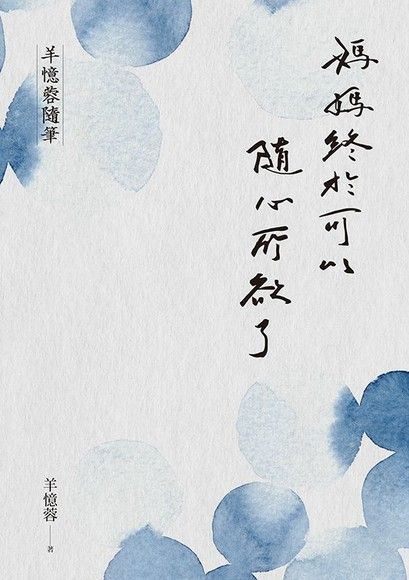 媽媽終於可以
隨心所欲了
羊憶蓉隨筆
羊憶蓉──著